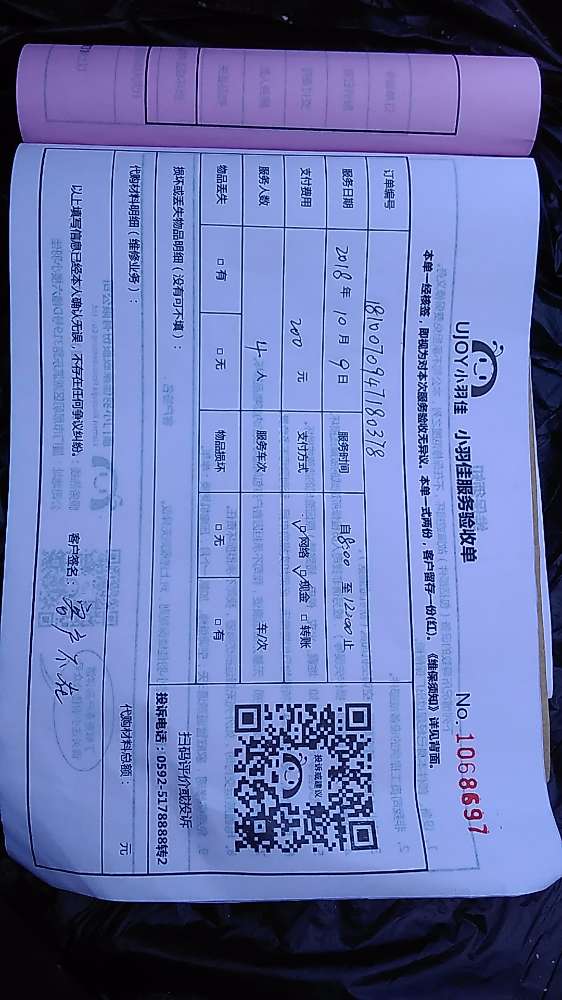 UJOY小羽佳 小羽佳服务验收单
No. 1068697
本单一经核签，即视为对本次服务验收无异议。本单一式两份，客户留存一份(红)。《维保须知》详见背面。
订单编号 1810070947180378
服务日期 2018年10月9日 服务时间 自8:00至12:00止
支付费用 200元 支付方式 ☑网络 ☑现金 □转账
服务人数 4人 服务车次 车/次
物品丢失 □有 □无 物品损坏 □无 □有
投诉或建议
扫码评价或投诉
投诉电话：0592-5178888转2
损坏或丢失物品明细（没有可不填）：
代购材料明细（维修业务）：
代购材料总额： 元
以上填写信息已经本人确认无误，不存在任何争议纠纷。
客户签名：客户不在